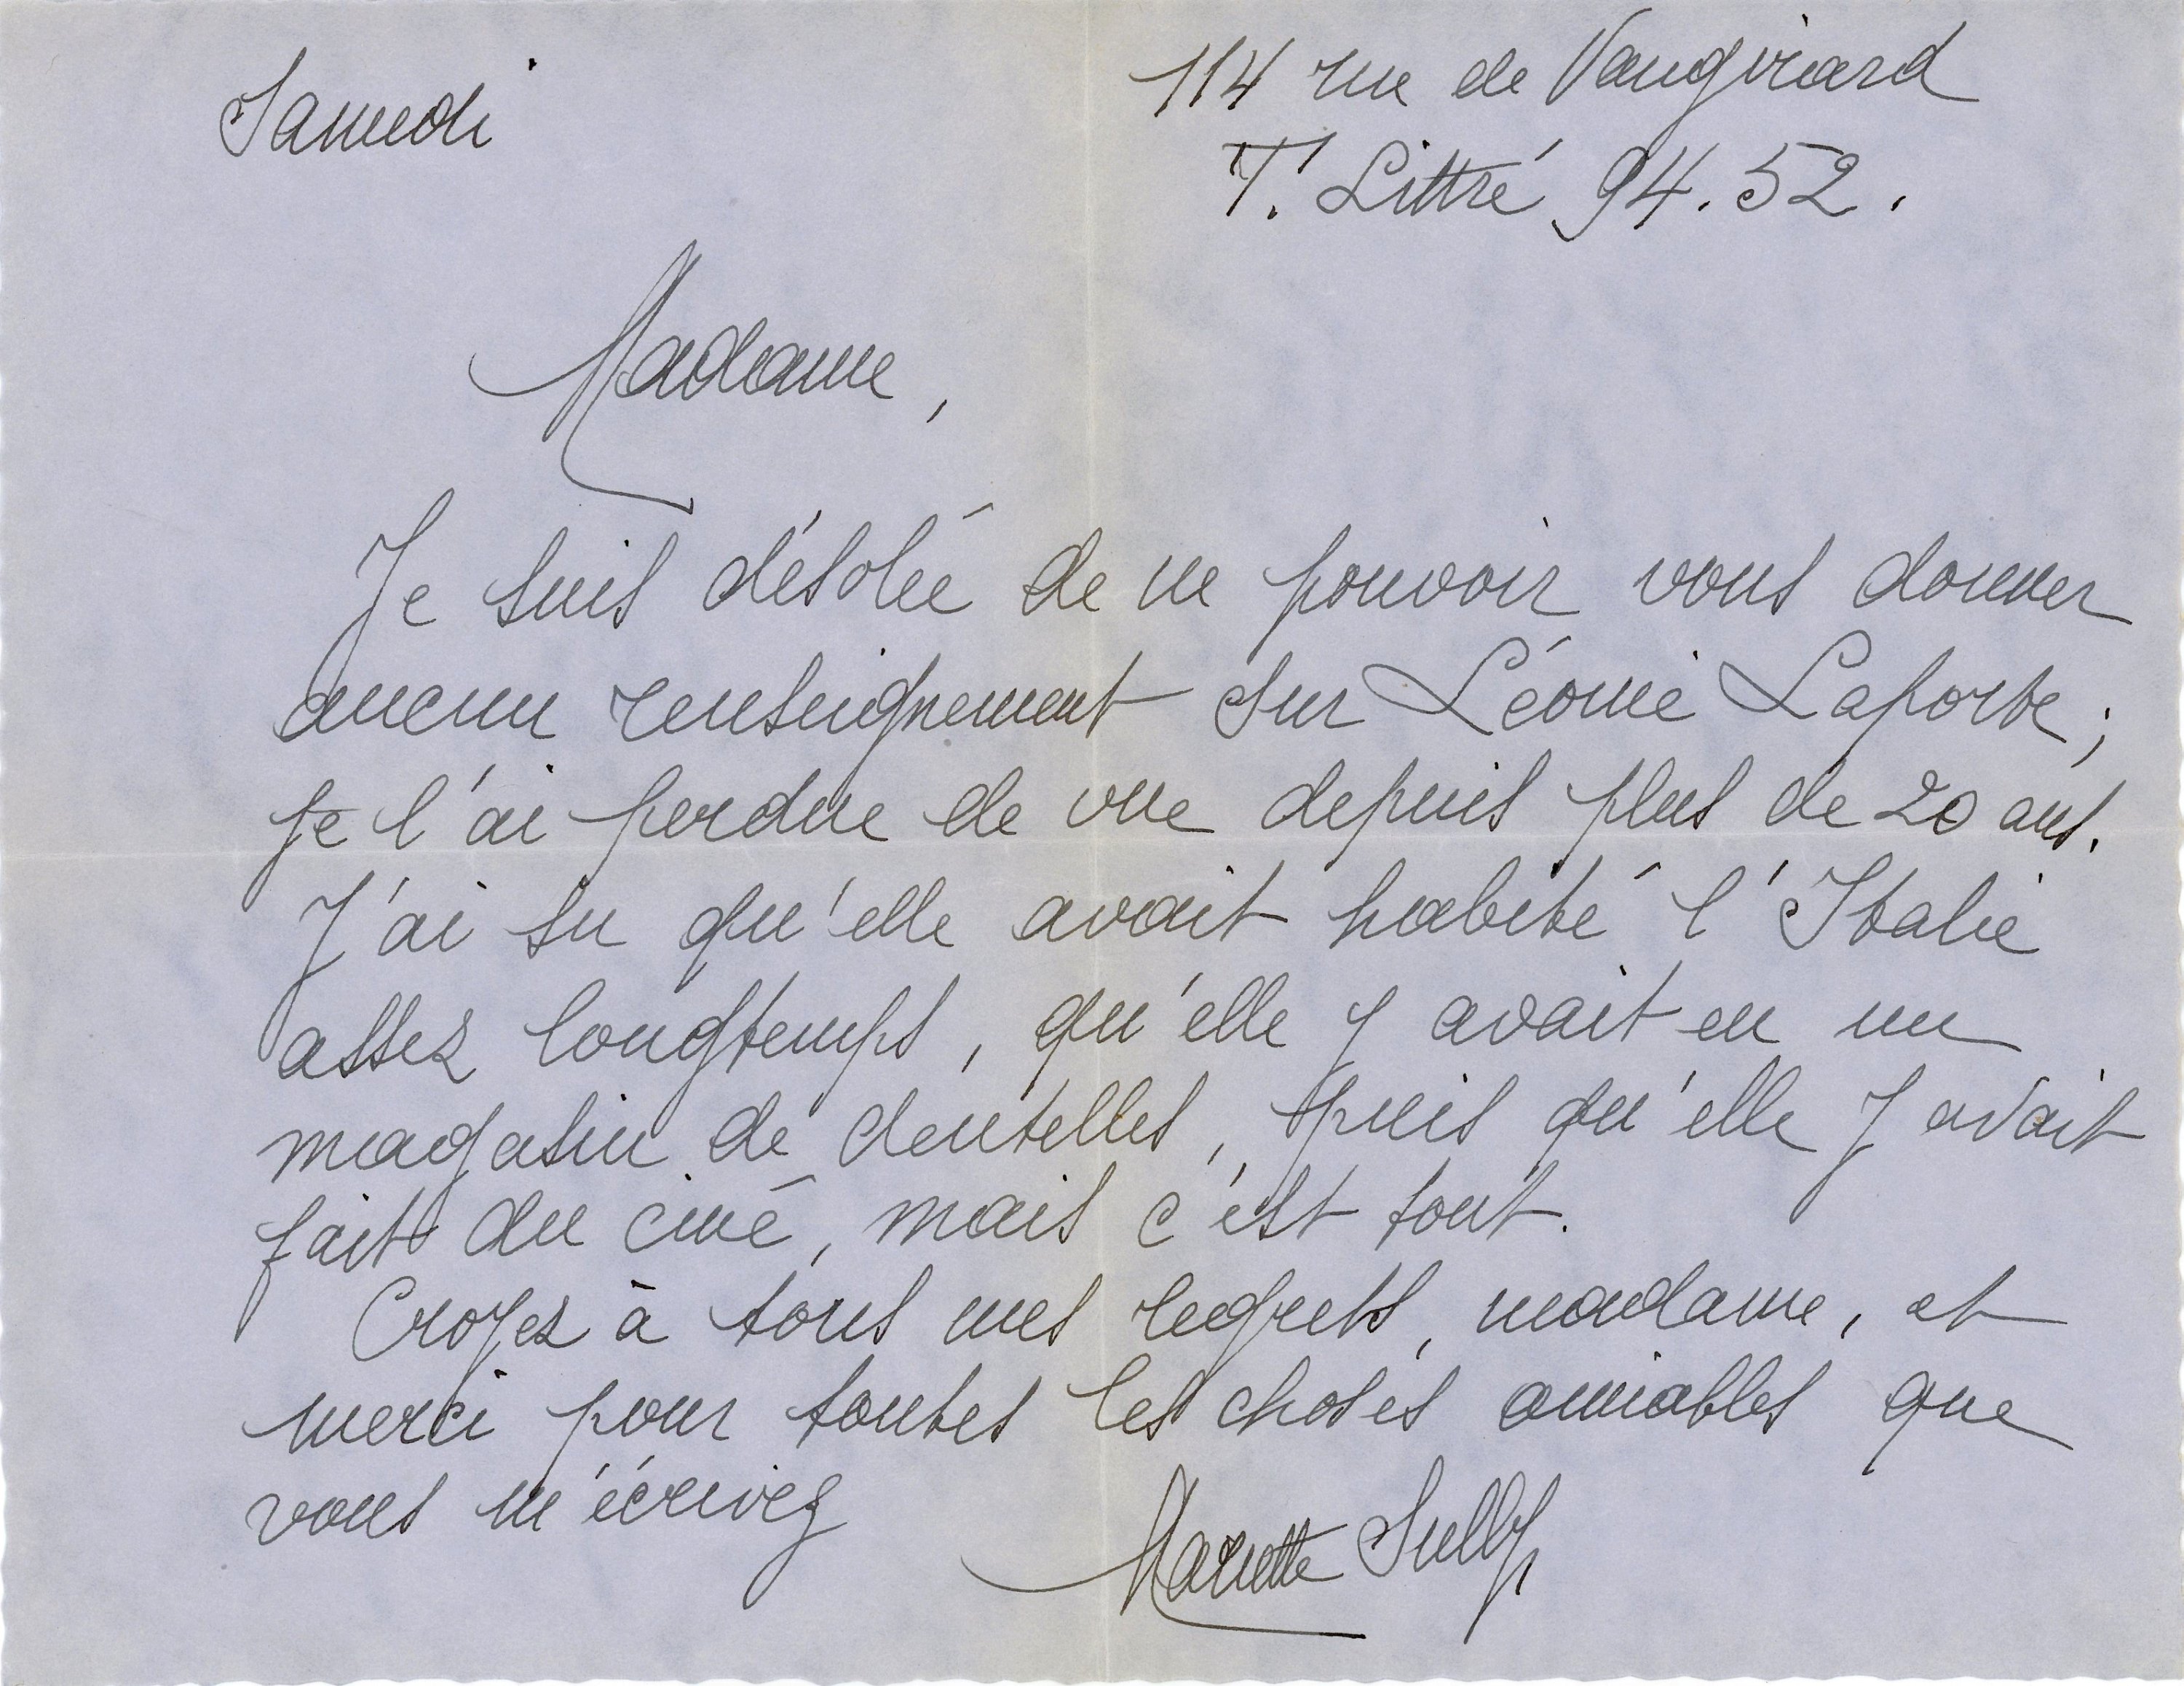 Samedi
114 rue de Vaugirard
T. Littré 94.52.
Madame,
Je suis désolée de ne pouvoir vous donner
aucun renseignement sur Léonie Laporte ;
je l'ai perdue de vue depuis plus de 20 ans.
J'ai su qu'elle avait habité l'Italie
assez longtemps, qu'elle y avait eu un
magasin de dentelles, puis qu'elle y avait
fait du ciné, mais c'est tout.
Croyez à tous mes regrets, madame, et
merci pour toutes les choses aimables que
vous m'écrivez
Mariette Sully